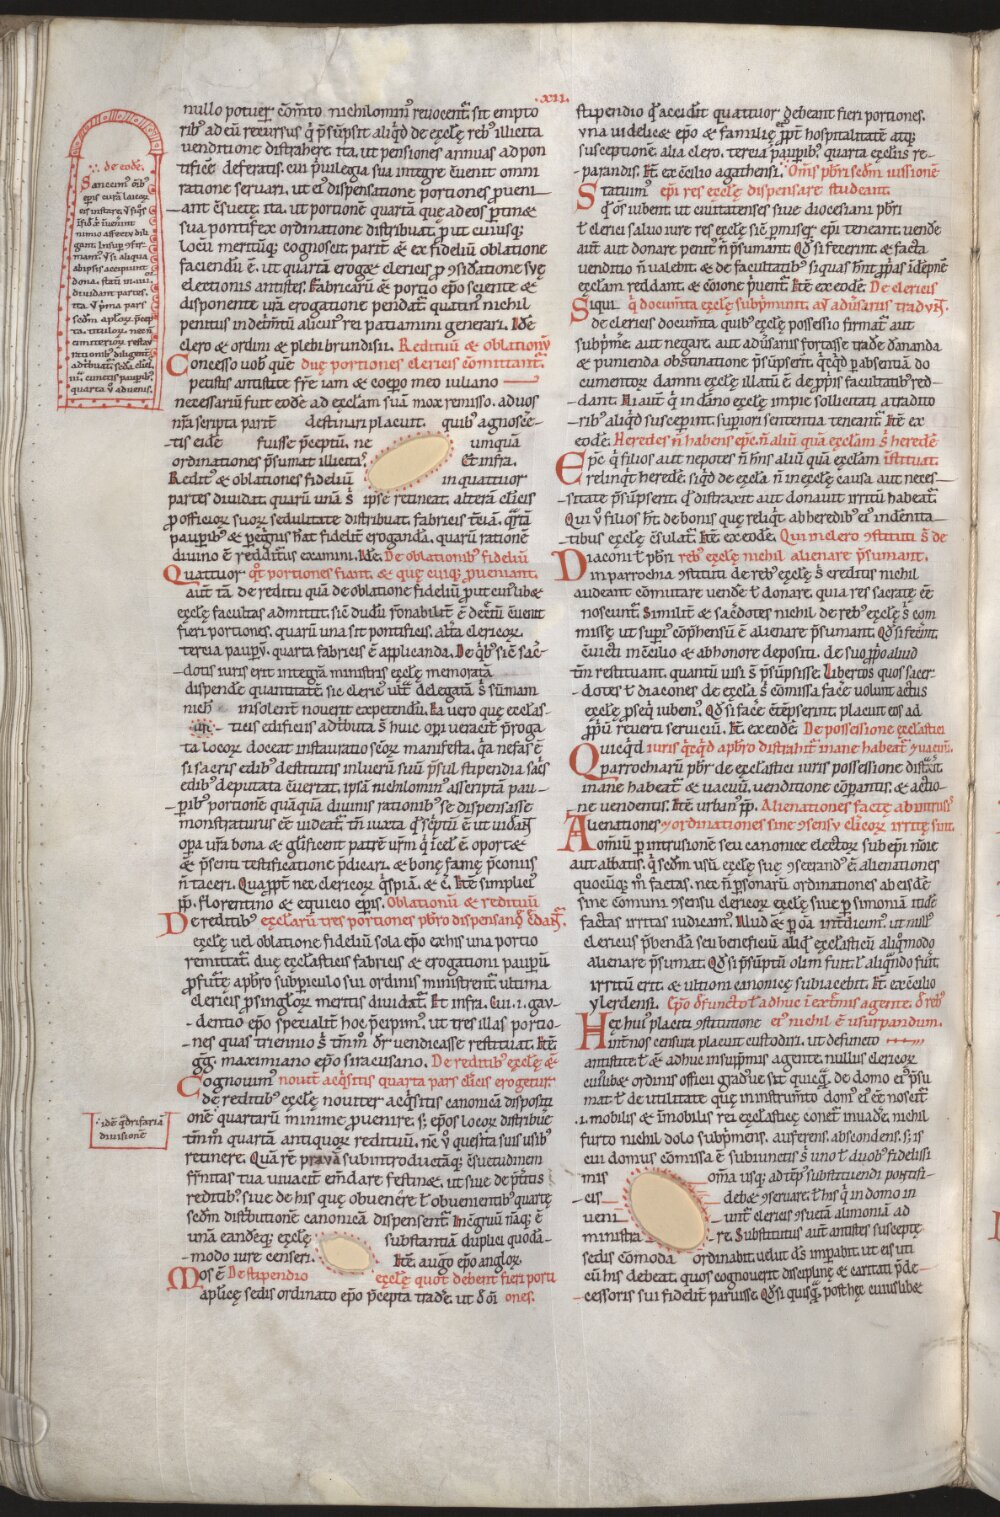 .xii.
.·. de eodē.
Sancimꝰ
nullo potuer̄ cōm̄to. nichilomin̄ reuocent̄. sit empto
ribꝰ ad eū recursus q̇ p̄sūpsit aliq̇d de eccl̄ę rebꝰ illicita
uenditione distrahere. ita. ut pensiones annuas ad pon
tificē deferatis. cui p̄uilegia sua integre ēuenit omni
ratione seruari. ut eiꝰ dispensatione portiones pueni
ant ēsuetę. ita. ut portionē quartā quę ad eos ptinꝫ
sua pontifex ordinatione distribuat. put cuiusqꝫ
locū meritūqꝫ cognoscit. parit̄ & ex fideliū oblatione
faciendū ē. ut quartā erogꝫ clericis p ꝯsid̄atione suę
electionis antistes. Fabricarū & portio ep̄o sciente &
disponente ur̄a erogatione pendat̄. quatin̄ nichil
penitus indēm̄tū alicuiꝰ rei patiamini generari. Idē
clero & ordini & plebi brundisii. Redituū & oblationū
Concesso uob̄ que duę portiones clericis cōmittant̄.
petistis antistite fr̄e iam & coep̄o meo iuliano
necessariū fuit eodē ad eccl̄am suā mox remisso. ad uos
nr̄a scripta parit̄ destinari placuit. quibꝰ agnosce-
tis eidē fuisse p̄ceptū. ne umquā
ordinationes p̄sumat illicitaꝰ. Et infra.
Redit̄ & oblationes fideliū in quattuor
partes diuidat. quarū unā s̄ ipse retineat. alterā cl̄icis
p officioꝝ suoꝝ sedulitate distribuat. fabricis t̄ciā. q̄rtā
paupibꝰ & pegrinis h̄at fidelit̄ erogandā. quarū rationē
diuino ē redditurꝰ examini. Idē. De oblationibꝰ fideliū
Quattuor qt̄ portiones fiant. & quę cuiqꝫ pueniant.
aut̄ tā de reditu quā de oblatione fideliū put cuiuslibꝫ
eccl̄ę facultas admittit. sic̄ dudū r̄onabilit̄ ē dec̄tū ēuenit
fieri portiones. quarū una sit pontificis. alt̄a clericoꝝ.
tercia paupū. quarta fabricis ē applicanda. De qb̄ꝰ sic̄ sac̄-
dotis iuris erit integrā ministris eccl̄ę memoratā
dispende quantitatē. sic clericꝰ ult̄ delegatā s̄ sūmam
nich̄ insolent̄ nouerit expetendū. Ea uero quę eccl̄as-
ticis edificiis adt̄buta s̄ huic opi ueracit̄ p̄roga
ta locoꝝ doceat instauratio sc̄oꝝ manifesta. qa nefas ē
si sacris edibꝰ destitutis in lucrū suū p̄sul stipendia sac̄s
edibꝰ deputata ēuertat. ipsā nichilominꝰ ascriptā pau-
pibꝰ portionē quāquā diuinis rationibꝰ se dispensasse
monstraturus ēē uideat̄. tn̄ iuxta q̇ sc̄ptū ē ut uideant
opa ur̄a bona & gl̄ificent patrē ur̄m q̇ i cel̄ ē. oportꝫ
& p̄senti testificatione p̄dicari. & bonę famę p̄coniis
n̄ taceri. Quapp̄t nec clericoꝝ q̇spiā. & c̄. Itē simpliciꝰ
pp̄. florentino & equicio ep̄is. Oblationū & redituū
De reditibꝰ eccl̄arū tres portiones p̄bro dispensand̄ c̄dant̄.
eccl̄ę uel oblatione fideliū sola ep̄o ex his una portio
remittat̄. duę eccl̄asticis fabricis & erogationi paupū
pfutūę a p̄bro sub piculo sui ordinis ministrent̄. ultima
clericis p singl̄oꝝ meritis diuidat̄. Et infra. Cui. i. gau-
dentio ep̄o specialit̄ hoc p̄cipimꝰ. ut tres illas portio-
nes quas triennio s̄ tm̄m dr̄ uendicasse restituat. Itē
gg̃. maximiano ep̄o siracusano. De reditibꝰ eccl̄ę &
Cognouimꝰ nouit̄ acq̇sitis quarta pars cl̄icis erogetur
de reditibꝰ eccl̄ę nouiter acq̇sitis canonicā dispositi
onē quartarū minime puenire. sꝫ ep̄os locoꝝ distribue
tm̄m quartā antiquoꝝ redituū. nc̄ ū quesita suis usibꝰ
retinere. Quā rē prauā subintroductāqꝫ ēsuetudinem
fr̄nitas tua uiuacit̄ em̄dare festinꝫ. ut siue de p̄t̄itis
reditibꝰ siue de his que obuenere ł obuenientibꝰ quartę
sedm̄ distbutionē canonicā dispensent̄. Incgruū nāqꝫ ē
unā eandēqꝫ eccl̄ę substantiā duplici quodā-
modo iure censeri. Itē. aug̃o ep̄o angloꝝ.
Mos ē De stipendio eccl̄ę quot debent fieri porti
aplicę sedis ordinato ep̄o p̄cepta trad̄e. ut d̄ ōi ones.
·idē q̄drifariā
diuisionē
stipendio q̇ accid̄it quattuor debeant fieri portiones.
una uidelicꝫ ep̄o & familię ppt̄ hospitalitatē atqꝫ
susceptionē. alia clero. tercia paupibꝰ. quarta eccl̄iis re-
parandis. Itē ex c̄cilio agathensi. Om̄s p̄bri sedm̄ iussionē
Statuimꝰ ep̄i res eccl̄ę dispensare studeant.
q̇ c̄os iubent. ut ciuitatenses siue diocesiani p̄bri
ł clerici saluo iure res eccl̄ę sic̄ pmiser̄ ep̄i teneant. uende
aut̄ aut donare penitꝰ n̄ p̄sumant. Qd̄ si fecerint. & facta
uenditio n̄ ualebit. & de facultatibꝰ si quas hn̄t pp̄as īdēpnē
eccl̄am reddant. & cōione p̄uent̄. Itē ex eodē. De clericis
Siqui. q̇ docum̄ta eccl̄ę subp̄munt. aū adūsariis tradūīt.
de clericis docum̄ta quibꝰ eccl̄ę possessio firmat̄. aut
subp̄me. aut negare. aut adūsariis fortasse trad̄e dānanda
& punienda obstinatione p̄sūpserit̄. q̇cq̇d p absentiā do
cumentoꝝ damni eccl̄ę illatū ē de ppriis facultatibꝰ red-
dant. Hi aut̄ q̇ in dāno eccl̄ę impie sollicitati a tradito
ribꝰ aliq̇d susceper̄int. supiori sententia teneant̄. Itē ex
eodē. Heredes n̄ habens ep̄c. n̄ aliū quā eccl̄am s̄ heredē
Ep̄c q̇ filios aut nepotes n̄ hn̄s aliū quā eccl̄am īstituat.
relinq̇t heredē. siq̇d de eccl̄a n̄ in eccl̄ę causa aut neces-
sitate p̄sūpserit. q̇ distraxit aut donauit irritū habeat̄.
Qui ū filios ht̄. de bonis quę reliq̇t. ab heredibꝰ eiꝰ indēnita-
tibus eccl̄ę c̄sulat̄. Itē ex eodē. Qui in clero ꝯstituti s̄ de
Diaconi ł p̄bri rebꝰ eccl̄ę nichil alienare p̄sumant.
in parrochia ꝯstituti de rebꝰ eccl̄ę s̄ creditis nichil
audeant cōmutare uende ł donare. quia res sacratę ēē
noscunt̄. Similit̄ & sac̄dotes nichil de rebꝰ eccl̄ę s̄ com
missę ut supiꝰ cōp̄hensū ē alienare p̄sumant. Qd̄ si fec̄int.
ēuicti in c̄cilio & ab honore depositi. de suo pp̄o aliud
tm̄ restituant. quantū uisi s̄ p̄sūpsisse. Libertos quos sacer-
dotes ł diacones de eccl̄a s̄ cōmissa fac̄e uolunt. actus
eccl̄ę pseq̇ iubem̄. Qd̄ si fac̄e c̄tēpserint. placuit eos ad
pp̄ū reuerti seruiciū. Itē ex eodē. De possessione eccl̄astici
Quicq̇d iuris q̇cq̇d a p̄bro distrahit̄. inane habeat̄ & uacuū.
parrochiarū p̄br de eccl̄astici iuris possessione dist̄xit.
inane habeat̄ & uacuū. uenditione cōparantis. & actio-
ne uendentis. Itē urban̄ pp̄. Alienationes factę ab intrusis
Alienationes & ordinationes sine ꝯsensu cl̄icoꝝ irritę sint.
omīū p intrusionē seu canonice electoꝝ sub ep̄i noīe
aut abbatis. q̇ sedm̄ usū eccl̄ę suę ꝯsecrandꝰ ē. alienationes
quocūqꝫ m̄ factas. nec n̄ psonarū ordinationes ab eisdē
sine comuni ꝯsensu clericoꝝ eccl̄ę siue p simoniā itidē
factas irritas iudicam̄. Illud & p ōa int̄dicim̄. ut nullꝰ
clericus p̄bendā seu beneficiū aliq̇ eccl̄asticū aliq̇modo
alienare p̄sumat. Qd̄ si p̄sūptū olim fuit. ł aliq̇ndo fuit̄
irritū erit. & ultioni canonicę subiacebit. Itē ex c̄cilio
ylerdensi. Ep̄o d̄functo ł adhuc ī ext̄mis agente. d̄ rebꝰ
Hęc huiꝰ placiti ꝯstitutione eiꝰ nichil ē usurpandum.
int̄ nos censura placuit custodiri. ut defuncto
antistite ł & adhuc in sup̄mis agente. nullus clericoꝝ
cuiuslibꝫ ordinis officii gradūe sit quicq̄. de domo eiꝰ p̄su
mat ł de utilitate quę instrum̄to domꝰ ēē noscit̄
.i. mobilis & īmobilis rei eccl̄asticę conet̄ inuad̄e. nichil
furto nichil dolo subp̄mens. auferens. abscondens. sꝫ is
cui domus cōmissa ē subiunctis s̄ uno ł duobꝰ fidelissi
mis om̄ia usqꝫ ad tēpꝰ substituendi pontifi-
cis debꝫ ꝯseruare. ł his q̇ in domo in
ueni unt̄ clericis ꝯsuetā alimoniā ad
ministra re. Substitutus aut̄ antistes susceptę
sedis cōmoda ordinabit. uelut d̄s impabit. ut eis uti
cū his debeat. quos cognouerit disciplinę & caritati p̄de-
cessoris sui fidelit̄ paruisse. Qd̄ si quisq̄. posthęc cuiuslibꝫ